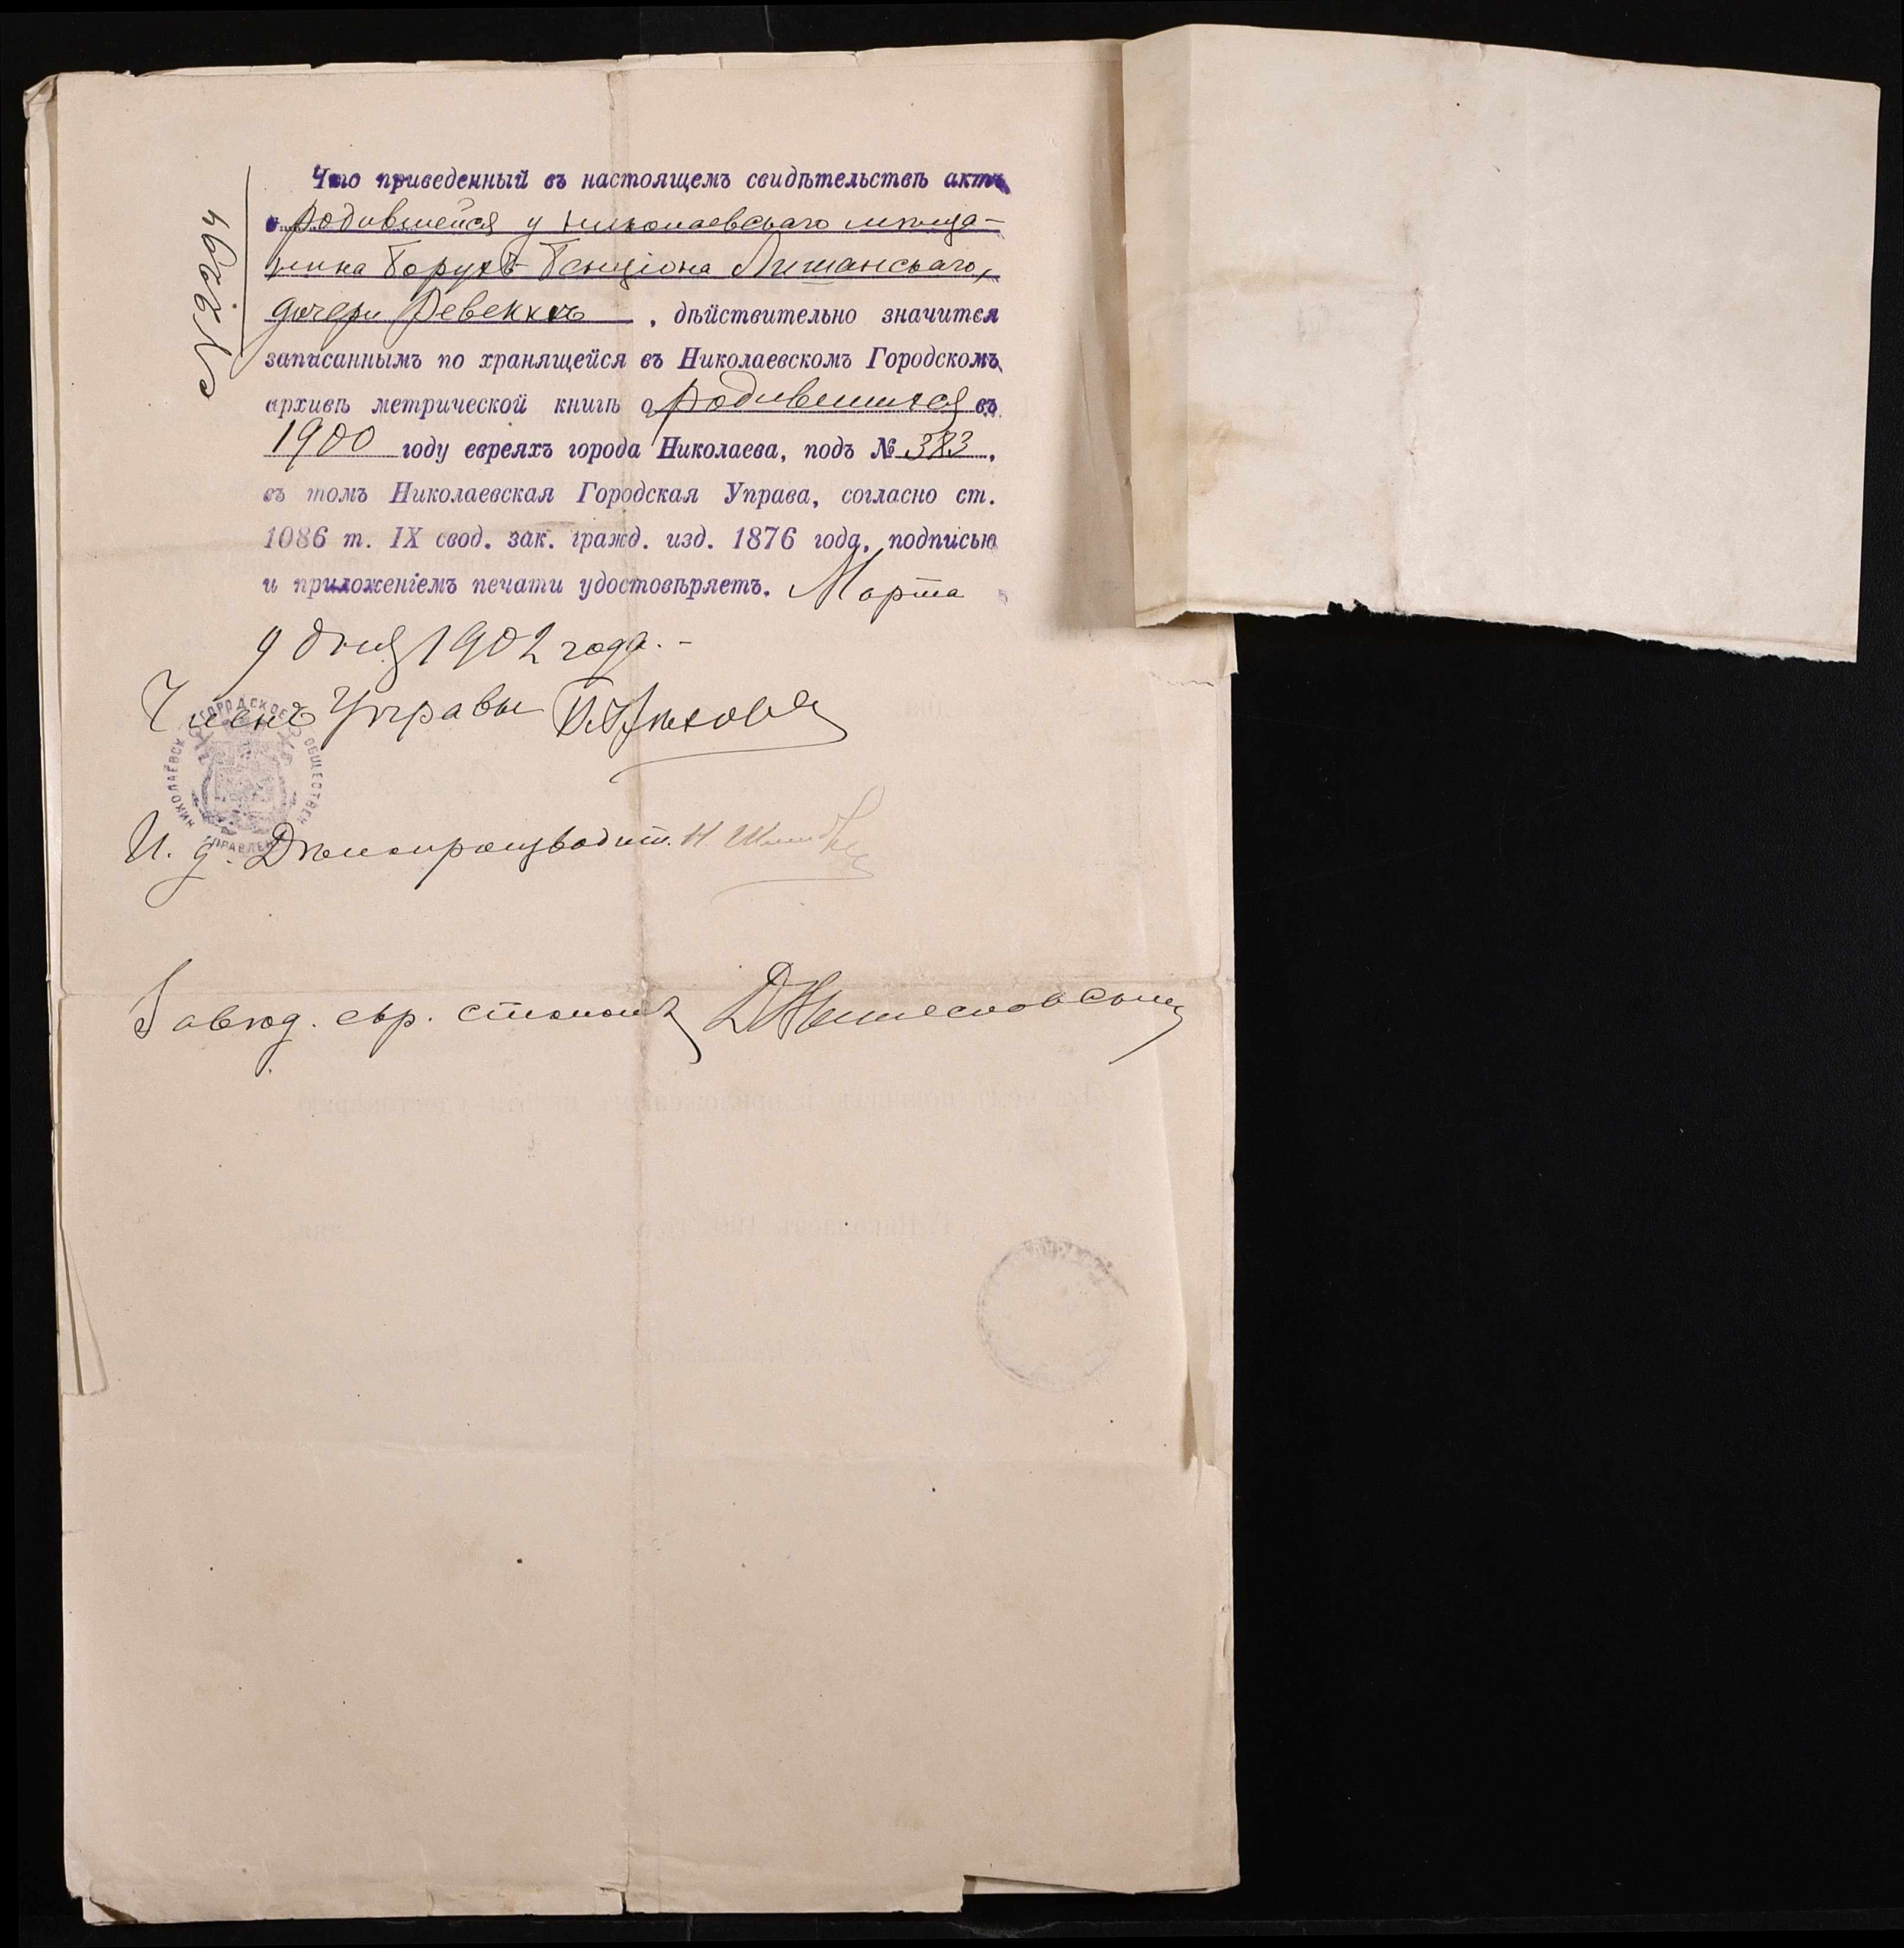 № 2294
Что приведенный въ настоящемъ свидѣтельствѣ актъ
о родившейся у николаевскаго мѣща-
нина Борухъ-Бенціона Лишанскаго,
дочери Ревеккѣ, дѣйствительно значится
записаннымъ по хранящейся въ Николаевскомъ Городскомъ
архивѣ метрической книгѣ о родившихся въ
1900 году евреяхъ города Николаева, подъ № 383,
въ томъ Николаевская Городская Управа, согласно ст.
1086 т. IX свод. зак. гражд. изд. 1876 года, подписью
и приложеніемъ печати удостовѣряетъ. Марта
9 дня 1902 года. -
Членъ Управы
НИКОЛАЕВСК ГОРОДСКОЕ ОБЩЕСТВЕН УПРАВЛЕН
И. д. Дѣлопроизводит.
Завѣд. евр. столомъ